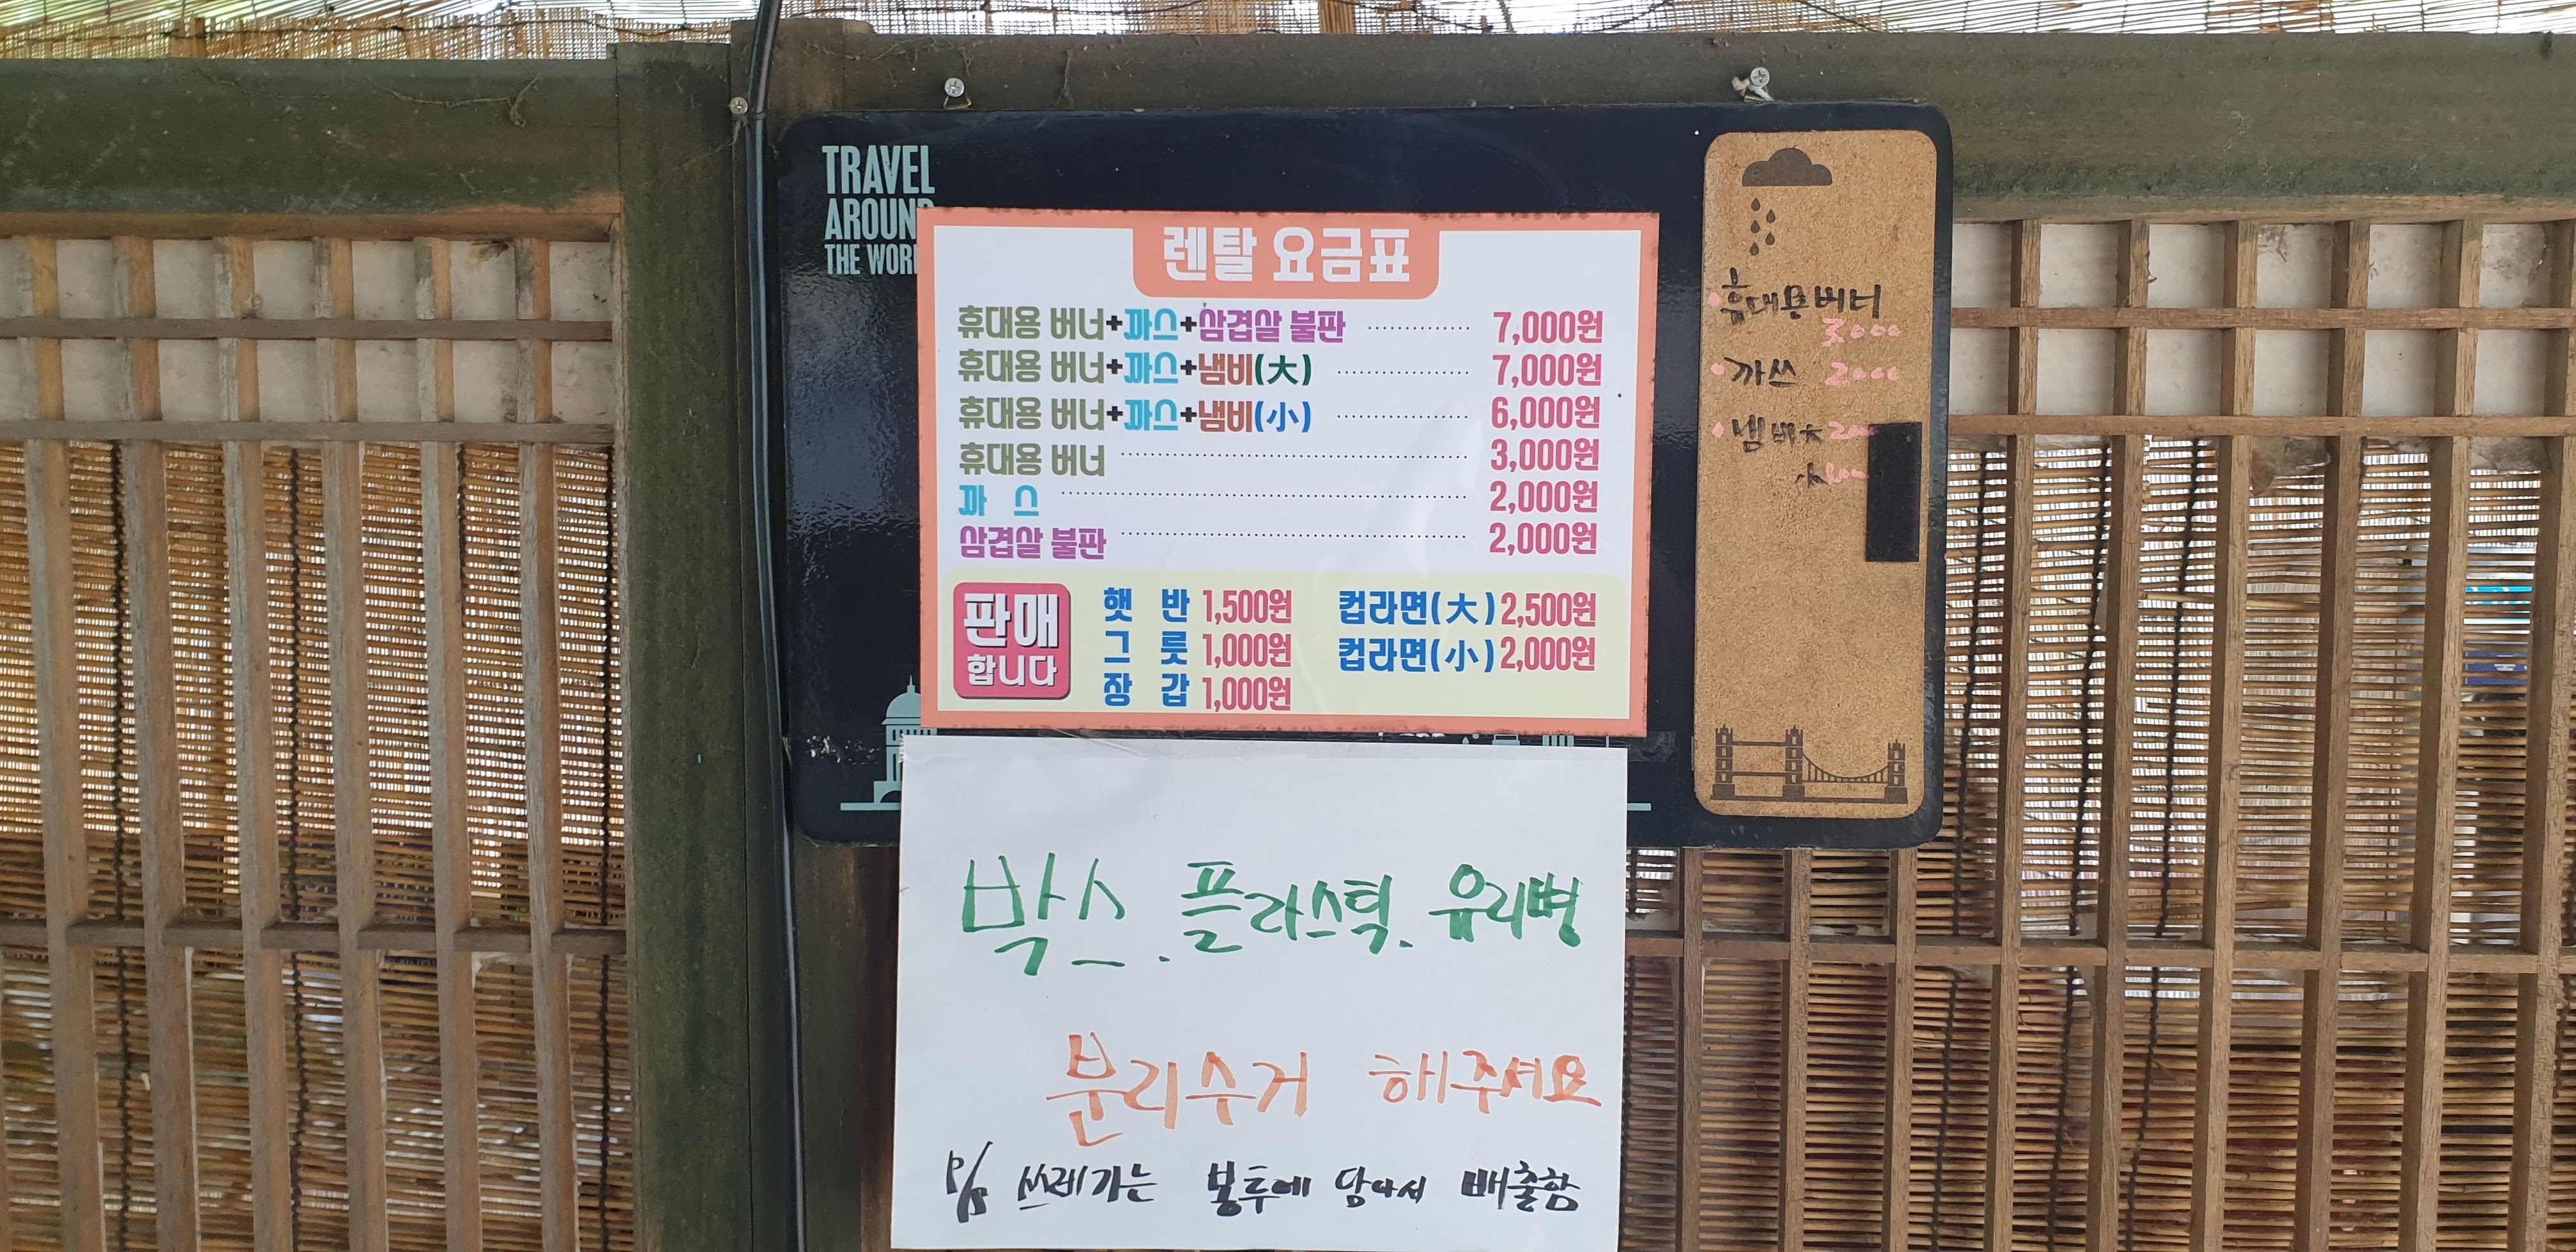 TRAVEL
AROUND
THE WORL
렌탈 요금표
휴대용 버너+까스+삼겹살 불판 7,000원
휴대용 버너+까스+냄비(大) 7,000원
휴대용 버너+까스+냄비(小) 6,000원
휴대용 버너 3,000원
까 스 2,000원
삼겹살 불판 2,000원
판매
합니다
햇 반 1,500원 컵라면(大) 2,500원
그 릇 1,000원 컵라면(小) 2,000원
장 갑 1,000원
휴대용버너
3000
까쓰 2000
냄비大
小
박스. 플라스틱. 유리병
분리수거 해주셔요
P/S 쓰레기는 봉투에 담아서 배출함